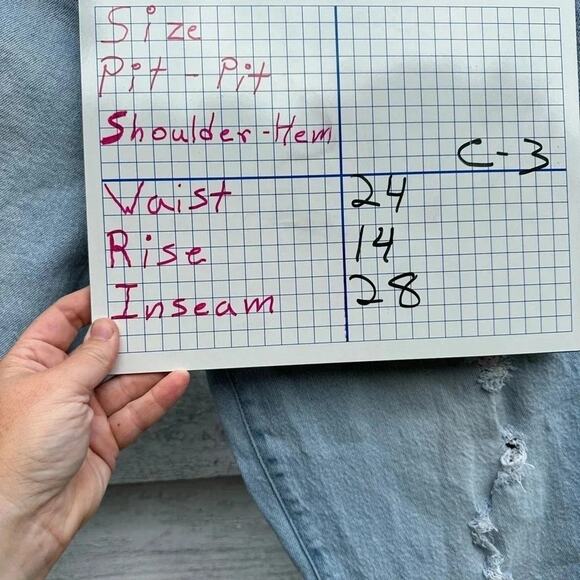 Size
Pit - Pit
Shoulder-Hem
C-3
Waist 24
Rise 14
Inseam 28